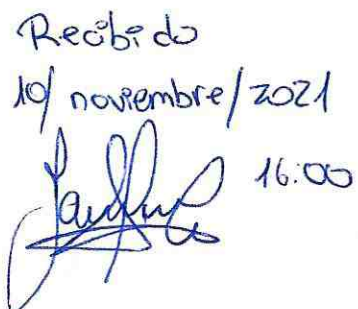 Recibido
10/ noviembre/2021
16:00